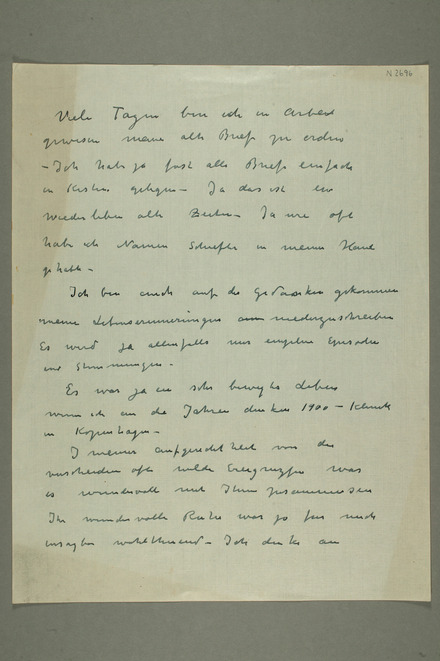 N 2696
Viele Tagen bin ich in Arbeid
gewesen meine alte Briefe zu ordnen
– Ich habe ja fast alle Briefe einfach
in Kisten gelegen – Ja das ist ein
wiederleben alte Zeiten – Ja wie oft
habe ich Namen Schiefler in meiner Hand
gehabt –
Ich bin auch auf die Gedanken gekommen
meine Lebenserinnerungen niederzuschreiben
Es wird ja allenfalls nur einzelne Episoden
und Stimmungen –
Es war ja ein sehr bewegte Leben
wenn ich an die Jahren denken 1900 – Klinik
in Kopenhagen –
I meiner aufgeregtheit von die
verschieden ofte wilde Ereignisse war
es wundervoll mit Ihnen zusammensein
Ihr wundervolle Ruhe war ja für mich
unsagbar wohlthuend – Ich denke an